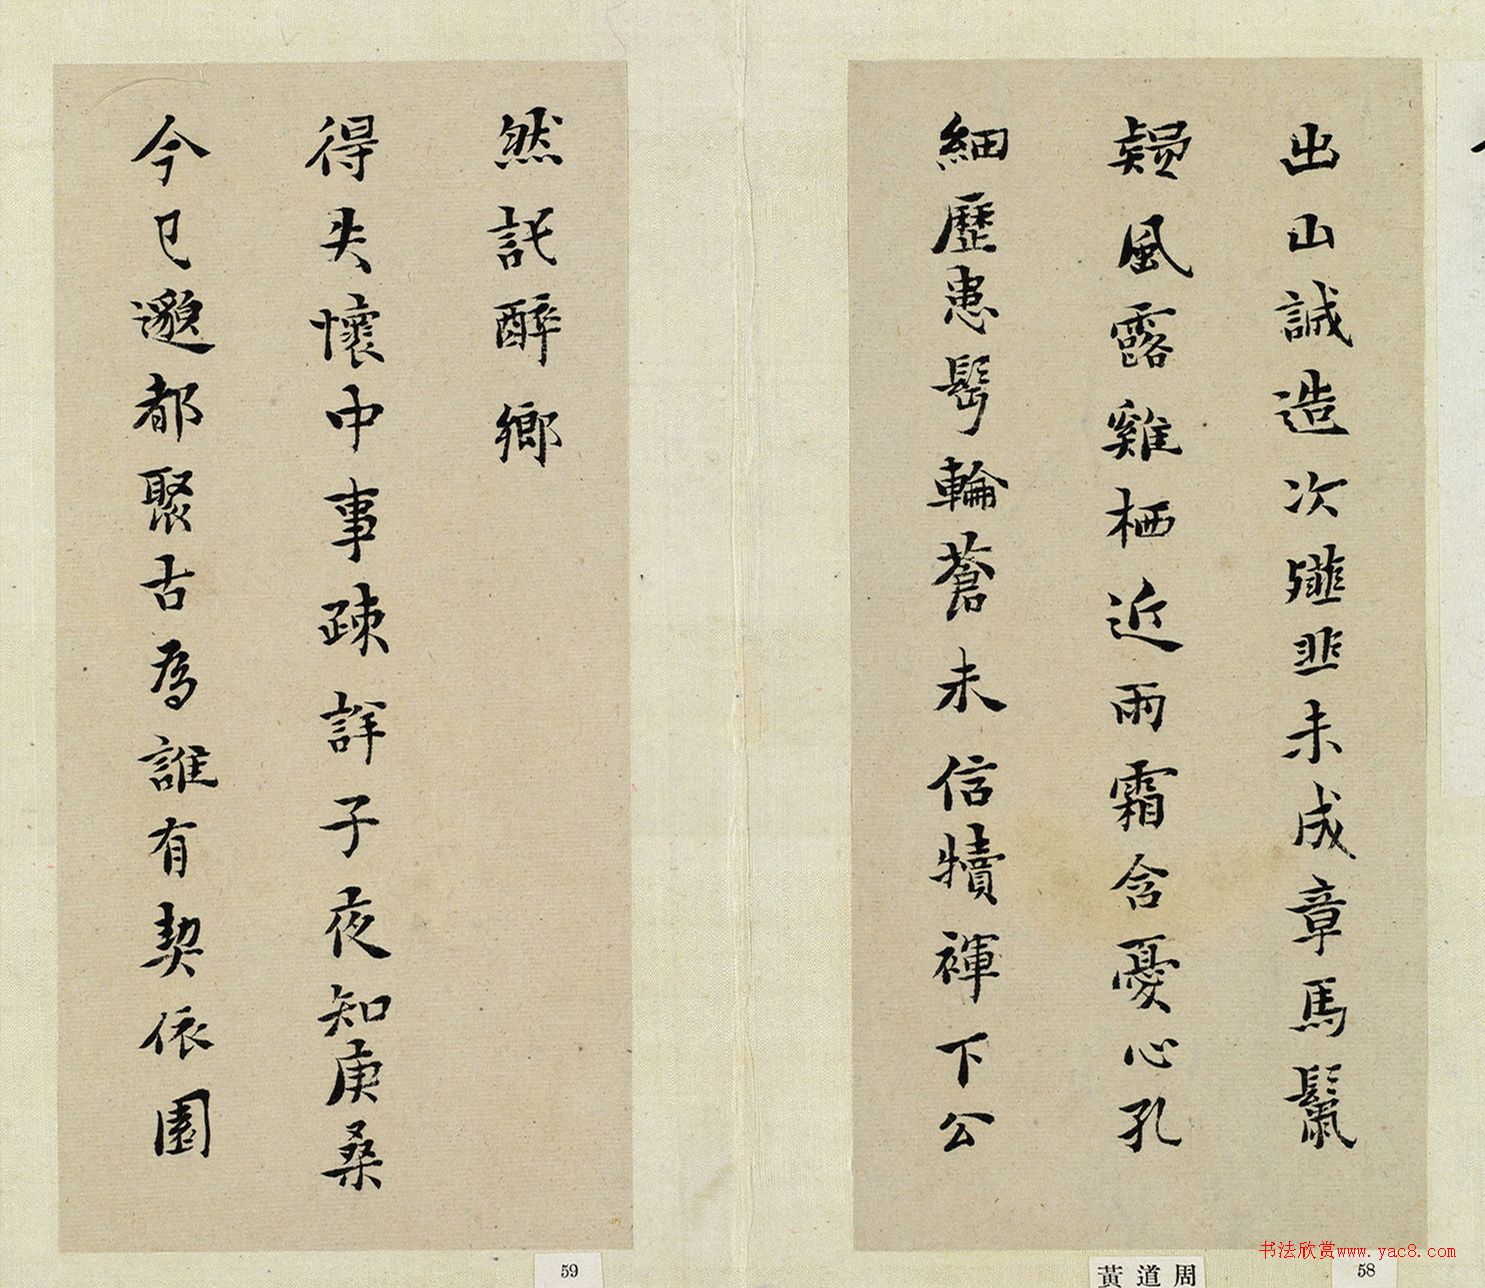 出山誠造次韭未成章馬鬣
風露雞栖近雨霜含憂心孔
細歷患髩輪蒼未信犢褌下公
然託醉鄉
得失懷中事疎詳子夜知庚桑
今已邈都聚古為誰有契依園
黃道周
58
59
书法欣赏www.yac8.com